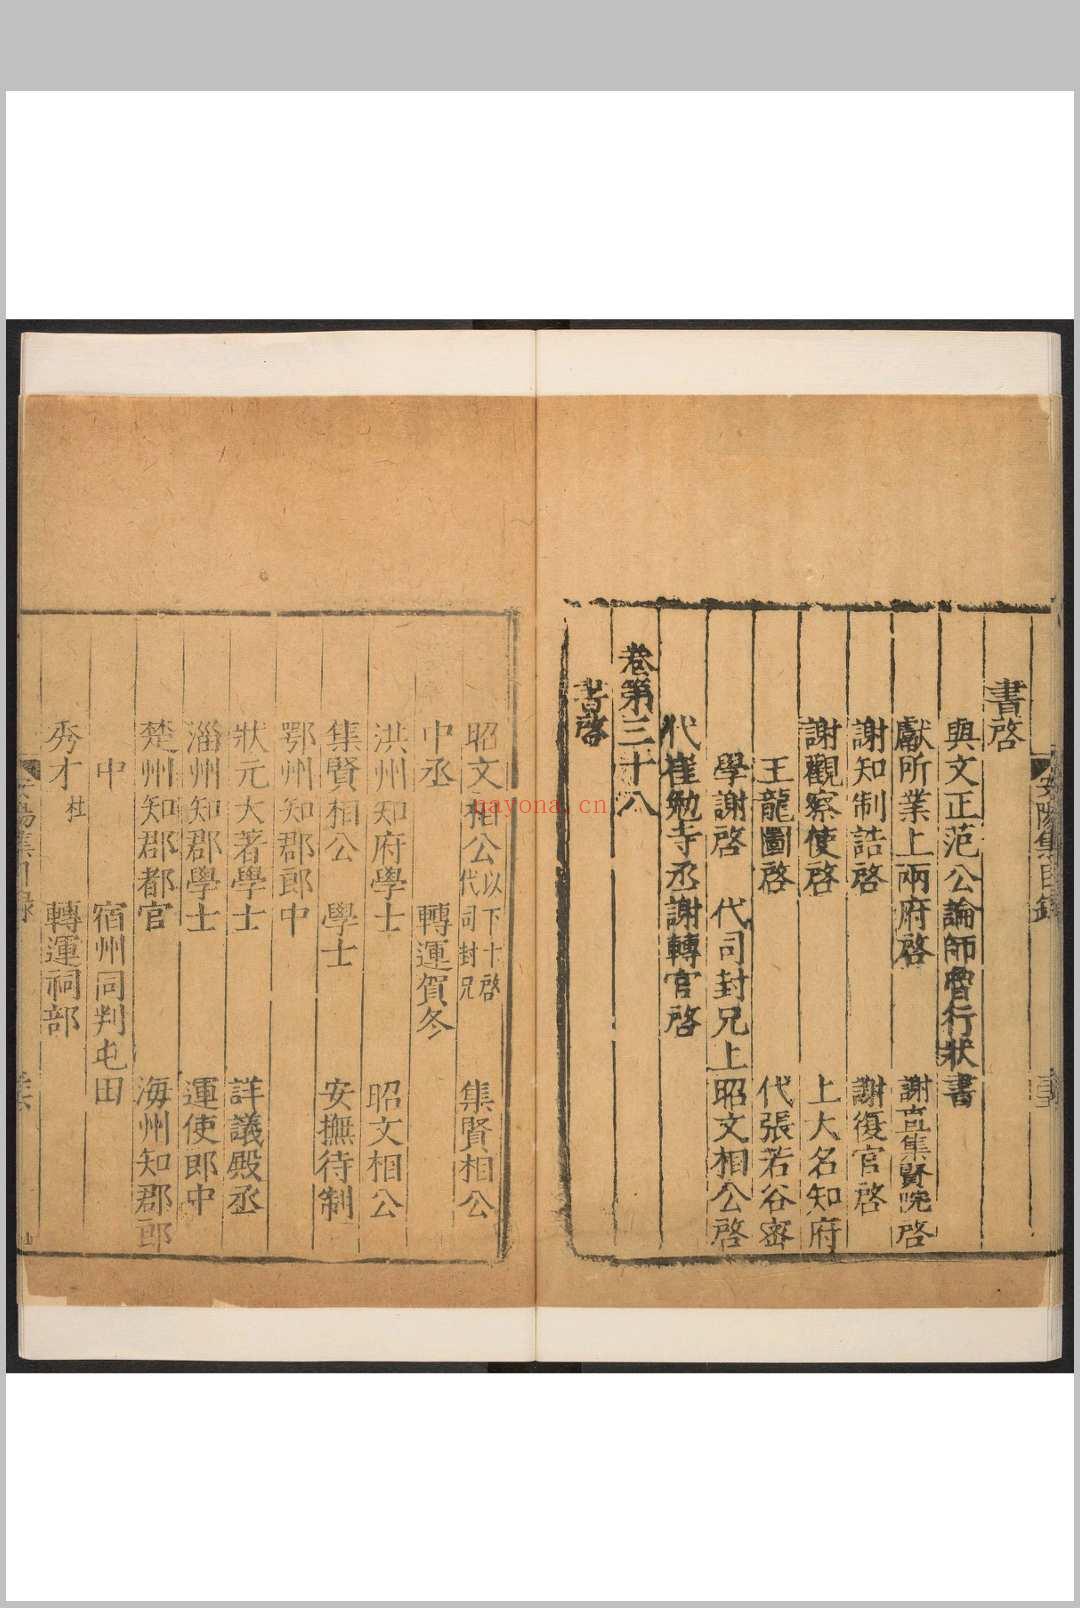 安陽集目錄
書啓
與文正范公論師魯行狀書
獻所業上兩府啓 謝直集賢院啓
謝知制誥啓 謝復官啓
謝觀察使啓 上大名知府
王龍圖啓 代張若谷密
學謝啓 代司封兄上昭文相公啓
代崔勉寺丞謝轉官啓
卷第三十八
書啓
昭文相公以下十啓代司封兄 集賢相公
中丞 轉運賀冬
洪州知府學士 昭文相公
集賢相公 學士 安撫待制
鄂州知郡郎中
狀元大著學士 詳議殿丞
淄州知郡學士 運使郎中
楚州知郡都官 海州知郡郎
中 宿州同判屯田
秀才杜 轉運祠部
安陽集目錄
nayona.cn